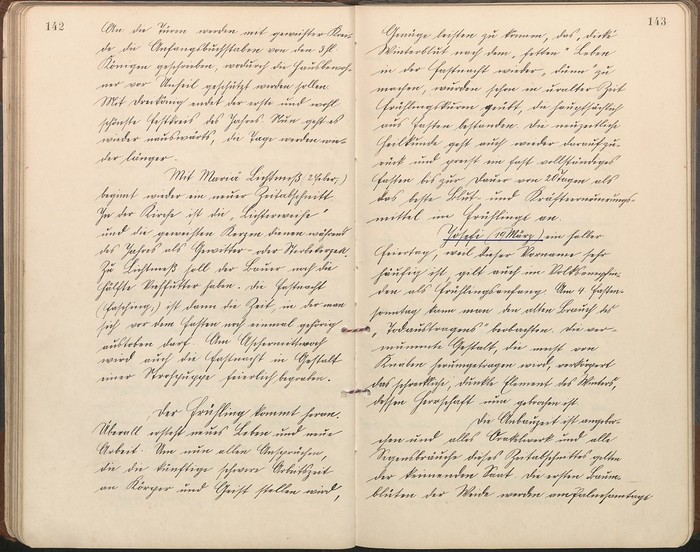 142
An die Türen werden mit geweihter Krei-
de die Anfangsbuchstaben von den 3 hl.
Königen geschrieben, wodurch die Hausbewoh-
ner vor Unheil geschützt werden sollen.
Mit Dreikönig endet der erste und wohl
schönste Festkreis des Jahres. Nun geht es
wieder auswärts, die Tage werden wie-
der länger.
Mit Mariä Lichtmeß (2. Feber)
beginnt wieder ein neuer Zeitabschnitt
In der Kirche ist die "Lichterweihe"
und die geweihten Kerzen dienen während
des Jahres als Gewitter- oder Sterbekerzen.
Zu Lichtmeß soll der Bauer noch die
Hälfte Viehfutter haben. Die Fastnacht
(Fasching) ist dann die Zeit, in der man
sich vor dem Fasten noch einmal gehörig
austoben darf. Am Aschermittwoch
wird auch die Fastnacht in Gestalt
einer Strohpuppe feierlich begraben.
Der Frühling kommt heran.
Überall ersteht neues Leben und neue
Arbeit. Um nun allen Ansprüchen,
die die künftige schwere Arbeitszeit
an Körper und Geist stellen wird,
143
Genüge leisten zu können, das "dicke"
Winterblut nach dem "fetten" Leben
in der Fastnacht wieder "dünn" zu
machen, wurden schon in uralter Zeit
Frühlingskuren geübt, die hauptsächlich
aus Fasten bestanden. Die neuzeitliche
Heilkunde geht auch wieder darauf zu-
rück und preist ein fast vollständiges
Fasten bis zur Dauer von 20 Tagen als
das beste Blut- und Kräfteerneuerungs-
mittel im Frühlinge an.
Josefi (19. März) ein halber
Feiertag, weil dieser Vorname sehr
häufig ist, gilt auch im Volksempfin-
den als Frühlingsanfang. Am 4. Fasten-
sonntag kann man den alten Brauch des
"Todaustragens" beobachten. Die ver-
mummte Gestalt, die meist von
Knaben herumgetragen wird, verkörpert
das schreckliche, dunkle Element des Winters
dessen Herrschaft nun gebrochen ist.
Die Anbauzeit ist angebro-
chen und alles und alle
Segensbräuche dieses Zeitabschnittes gelten
der keimenden Saat. Die ersten Baum-
blüten der Weide werden am Palmsonntage